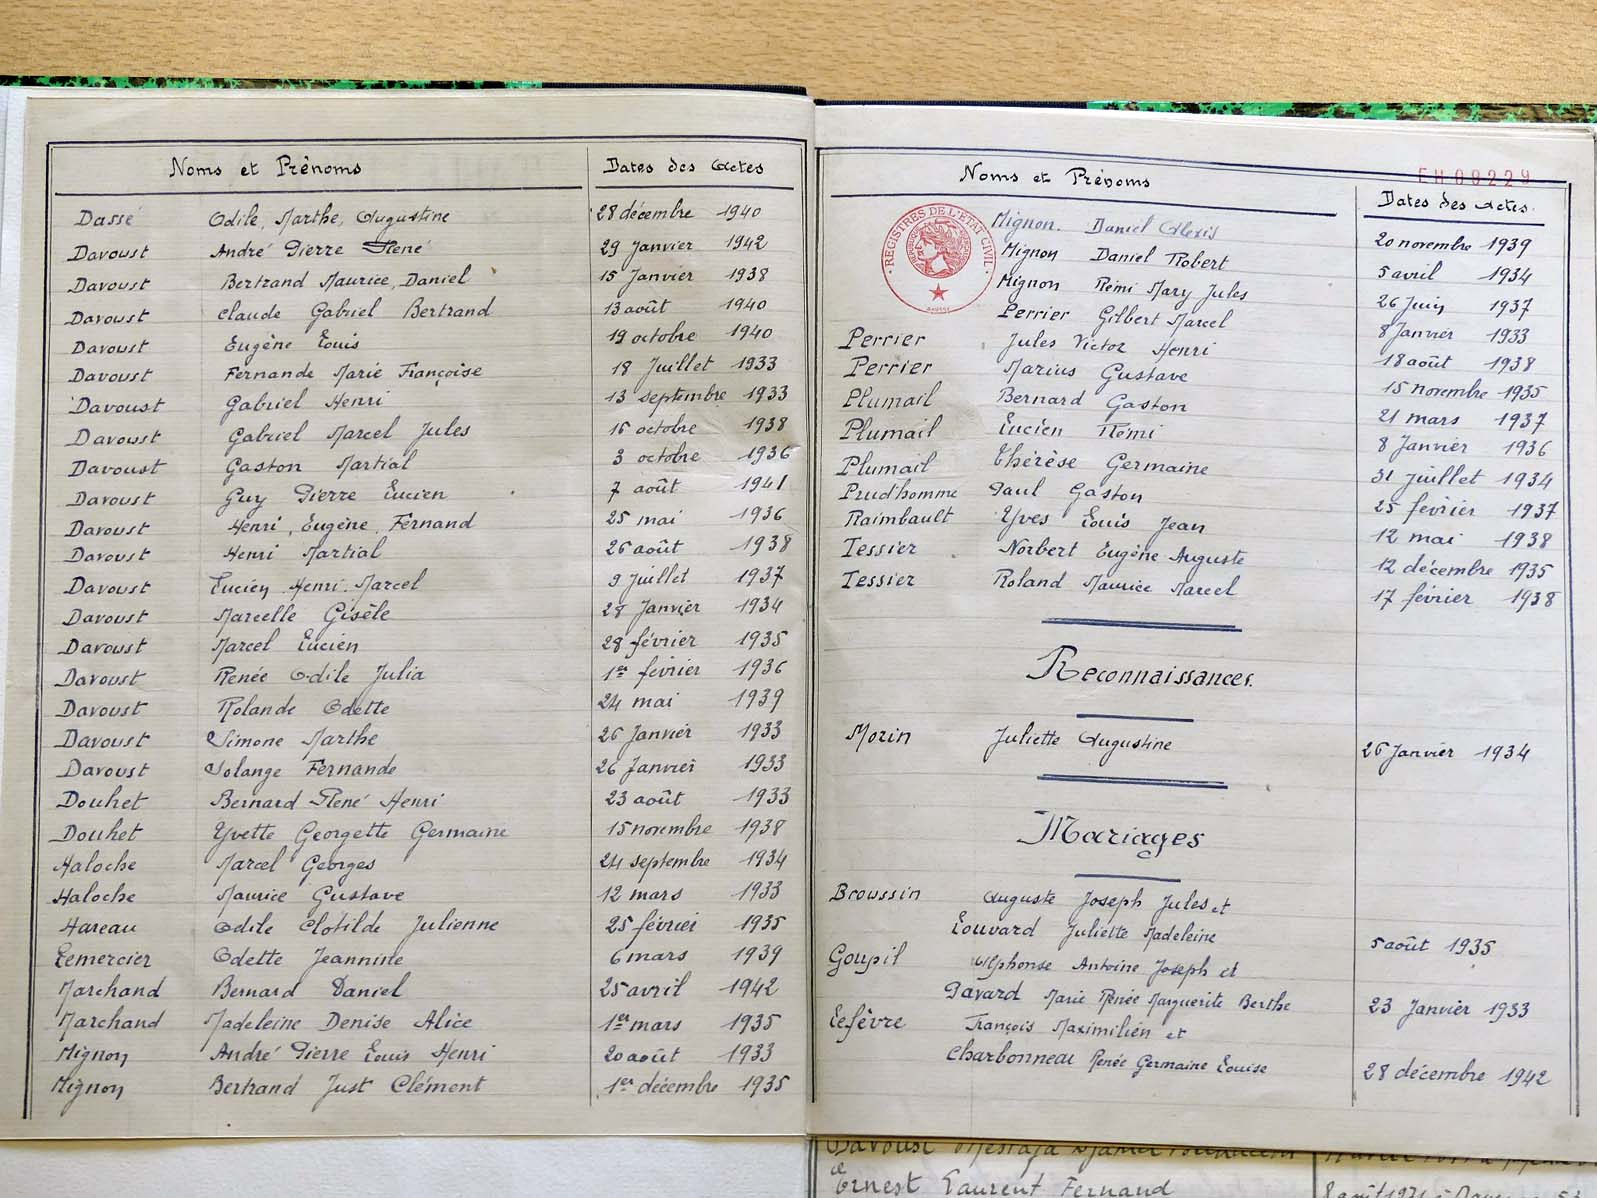 Noms et Prénoms Dates des Actes
Dassé Odile, Marthe, Augustine 28 décembre 1940
Davoust André Pierre René 29 Janvier 1942
Davoust Bertrand Maurice, Daniel 15 Janvier 1938
Davoust Claude Gabriel Bertrand 13 août 1940
Davoust Eugène Louis 19 octobre 1940
Davoust Fernande Marie Françoise 18 Juillet 1933
Davoust Gabriel Henri 13 septembre 1933
Davoust Gabriel Marcel Jules 16 octobre 1938
Davoust Gaston Martial 3 octobre 1936
Davoust Guy Pierre Lucien 7 août 1941
Davoust Henri, Eugène, Fernand 25 mai 1936
Davoust Henri Martial 26 août 1938
Davoust Lucien Henri Marcel 9 Juillet 1937
Davoust Marcelle Gisèle 28 Janvier 1934
Davoust Marcel Lucien 28 février 1935
Davoust Renée Odile Julia 1er février 1936
Davoust Rolande Odette 24 mai 1939
Davoust Simone Marthe 26 Janvier 1933
Davoust Solange Fernande 26 Janvier 1933
Douhet Bernard René Henri 23 août 1933
Douhet Yvette Georgette Germaine 15 novembre 1938
Haloche Marcel Georges 24 septembre 1934
Haloche Maurice Gustave 12 mars 1933
Hareau Odile Clotilde Julienne 25 février 1935
Lemercier Odette Jeannine 6 mars 1939
Marchand Bernard Daniel 25 avril 1942
Marchand Madeleine Denise Alice 1er mars 1935
Mignon André Pierre Louis Henri 20 août 1933
Mignon Bertrand Just Clément 1er décembre 1935
EH09229
Noms et Prénoms Dates des Actes
REGISTRES DE L'ETAT CIVIL
Mignon. Daniel Alexis 20 novembre 1939
Mignon Daniel Robert 5 avril 1934
Mignon Rémi Mary Jules 26 Juin 1937
Perrier Gilbert Marcel 8 Janvier 1933
Perrier Jules Victor Henri 18 août 1938
Perrier Marius Gustave 15 novembre 1935
Plumail Bernard Gaston 21 mars 1937
Plumail Lucien Rémi 8 Janvier 1936
Plumail Thérèse Germaine 31 Juillet 1934
Prud'homme Paul Gaston 25 février 1937
Raimbault Yves Louis Jean 12 mai 1938
Tessier Norbert Eugène Auguste 12 décembre 1935
Tessier Roland Maurice Marcel 17 février 1938
Reconnaissances.
Morin Juliette Augustine 26 Janvier 1934
Mariages
Broussin Auguste Joseph Jules et
Louvard Juliette Madeleine 5 août 1935
Goupil Alphonse Antoine Joseph et
Pavard Marie Renée Marguerite Berthe 23 Janvier 1933
Lefèvre François Maximilien et
Charbonneau Renée Germaine Louise 28 décembre 1942
Davoust
Ernest Laurent Fernand